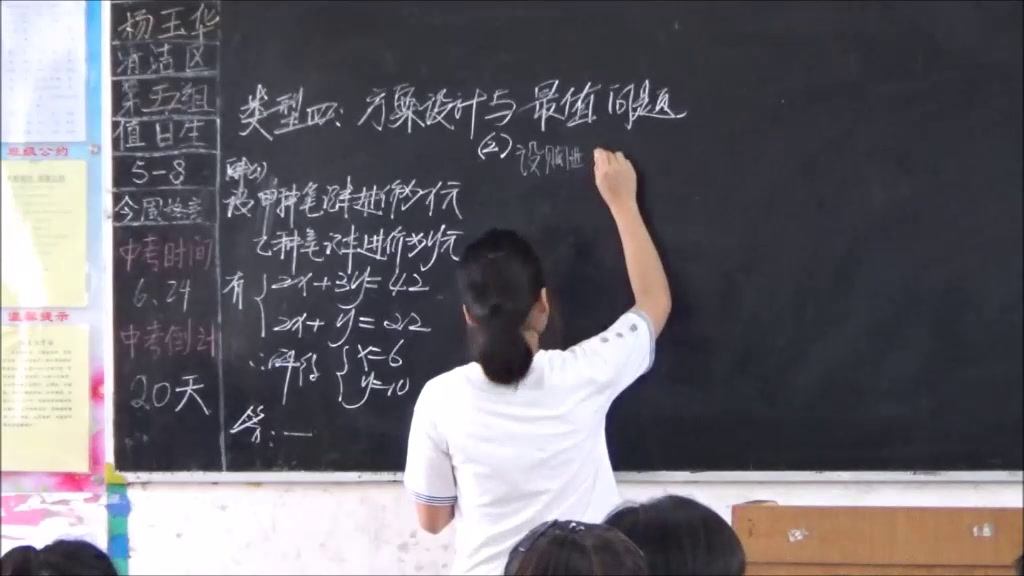 班级公约
温馨提示
杨玉华
清洁区
第五组
值日生
5-8
今周
中考时间
6、24
中考倒计
20天
类型四：方案设计与最值问题
解(1)
设甲种笔记本进价为x元
乙种笔记本进价为y元
有 2x+3y=42
2x+y=22
∴解得 x=6
y=10
答：—
(2) 设购进